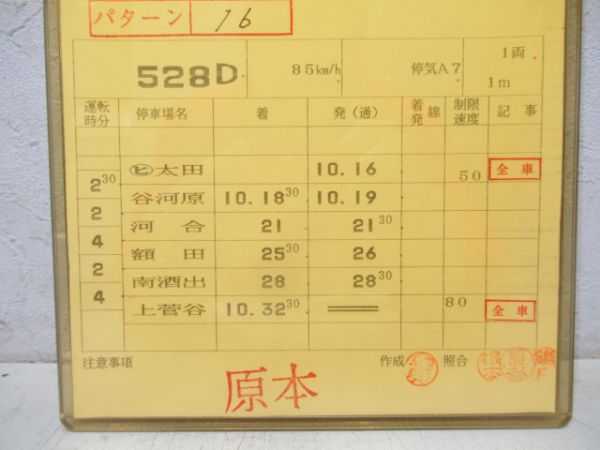 パターン 16
528D 85km/h 停気A7 1両 1m
運転時分 停車場名 着 発(通) 着発線 制限速度 記事
㋪太田 10.16 50 全車
2³⁰
谷河原 10.18³⁰ 10.19
2
河合 21 21³⁰
4
額田 25³⁰ 26
2
南酒出 28 28³⁰
4
上菅谷 10.32³⁰ ═ 80 全車
注意事項 作成 照合
原本